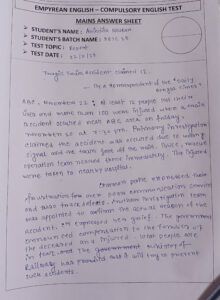 EMPYREAN ENGLISH – COMPULSORY ENGLISH TEST
MAINS ANSWER SHEET
STUDENT'S NAME :
STUDENT'S BATCH NAME :
TEST TOPIC : Report
TEST DATE :
Tragic Train Accident claimed 12
By a Correspondent of the "Daily
ABP, November 22 : At least 12 people lost their
lives and more than 100 were injured when a train
accident occurred near ABC area on Friday,
November 22 at 7:30 p.m. Preliminary investigation
claimed the accident was occurred due to wrong
signal and the train got off the rail. Police, rescue
operation team reached there immediately. The injured
were taken to nearby hospital.
expressed their
frustration for over poor communications
and also track
was appointed to confirm the actual reason of the
accident. expressed deep grief. The government
announced compensation to the families of
the deceased and injured. Local people are
in fear and the government ministry of
Railway has promised that it will try to prevent
such accidents.